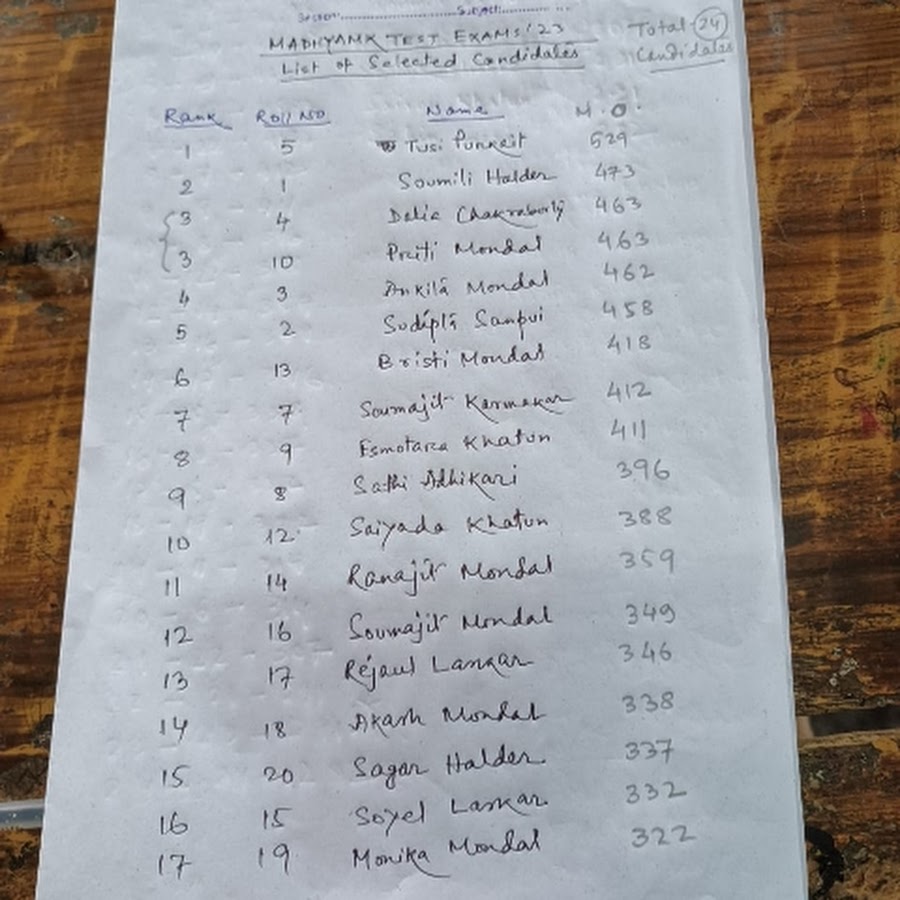 Section:.................... Subject:............. ...
MADHYAMIK TEST EXAMS'23
List of Selected Candidates
Total 24 Candidates
Rank Roll No Name M.O.
1 5 Tusi Purkait 529
2 1 Soumili Halder 473
3 4 Dalia Chakraborty 463
3 10 Priti Mondal 463
4 3 Ankita Mondal 462
5 2 Sudipta Sanpui 458
6 13 Bristi Mondal 418
7 7 Soumajit Karmakar 412
8 9 Esmotara Khatun 411
9 8 Sathi Adhikari 396
10 12 Saiyada Khatun 388
11 14 Ranajit Mondal 359
12 16 Soumajit Mondal 349
13 17 Rejaul Laskar 346
14 18 Akash Mondal 338
15 20 Sagar Halder 337
16 15 Soyel Laskar 332
17 19 Monika Mondal 322